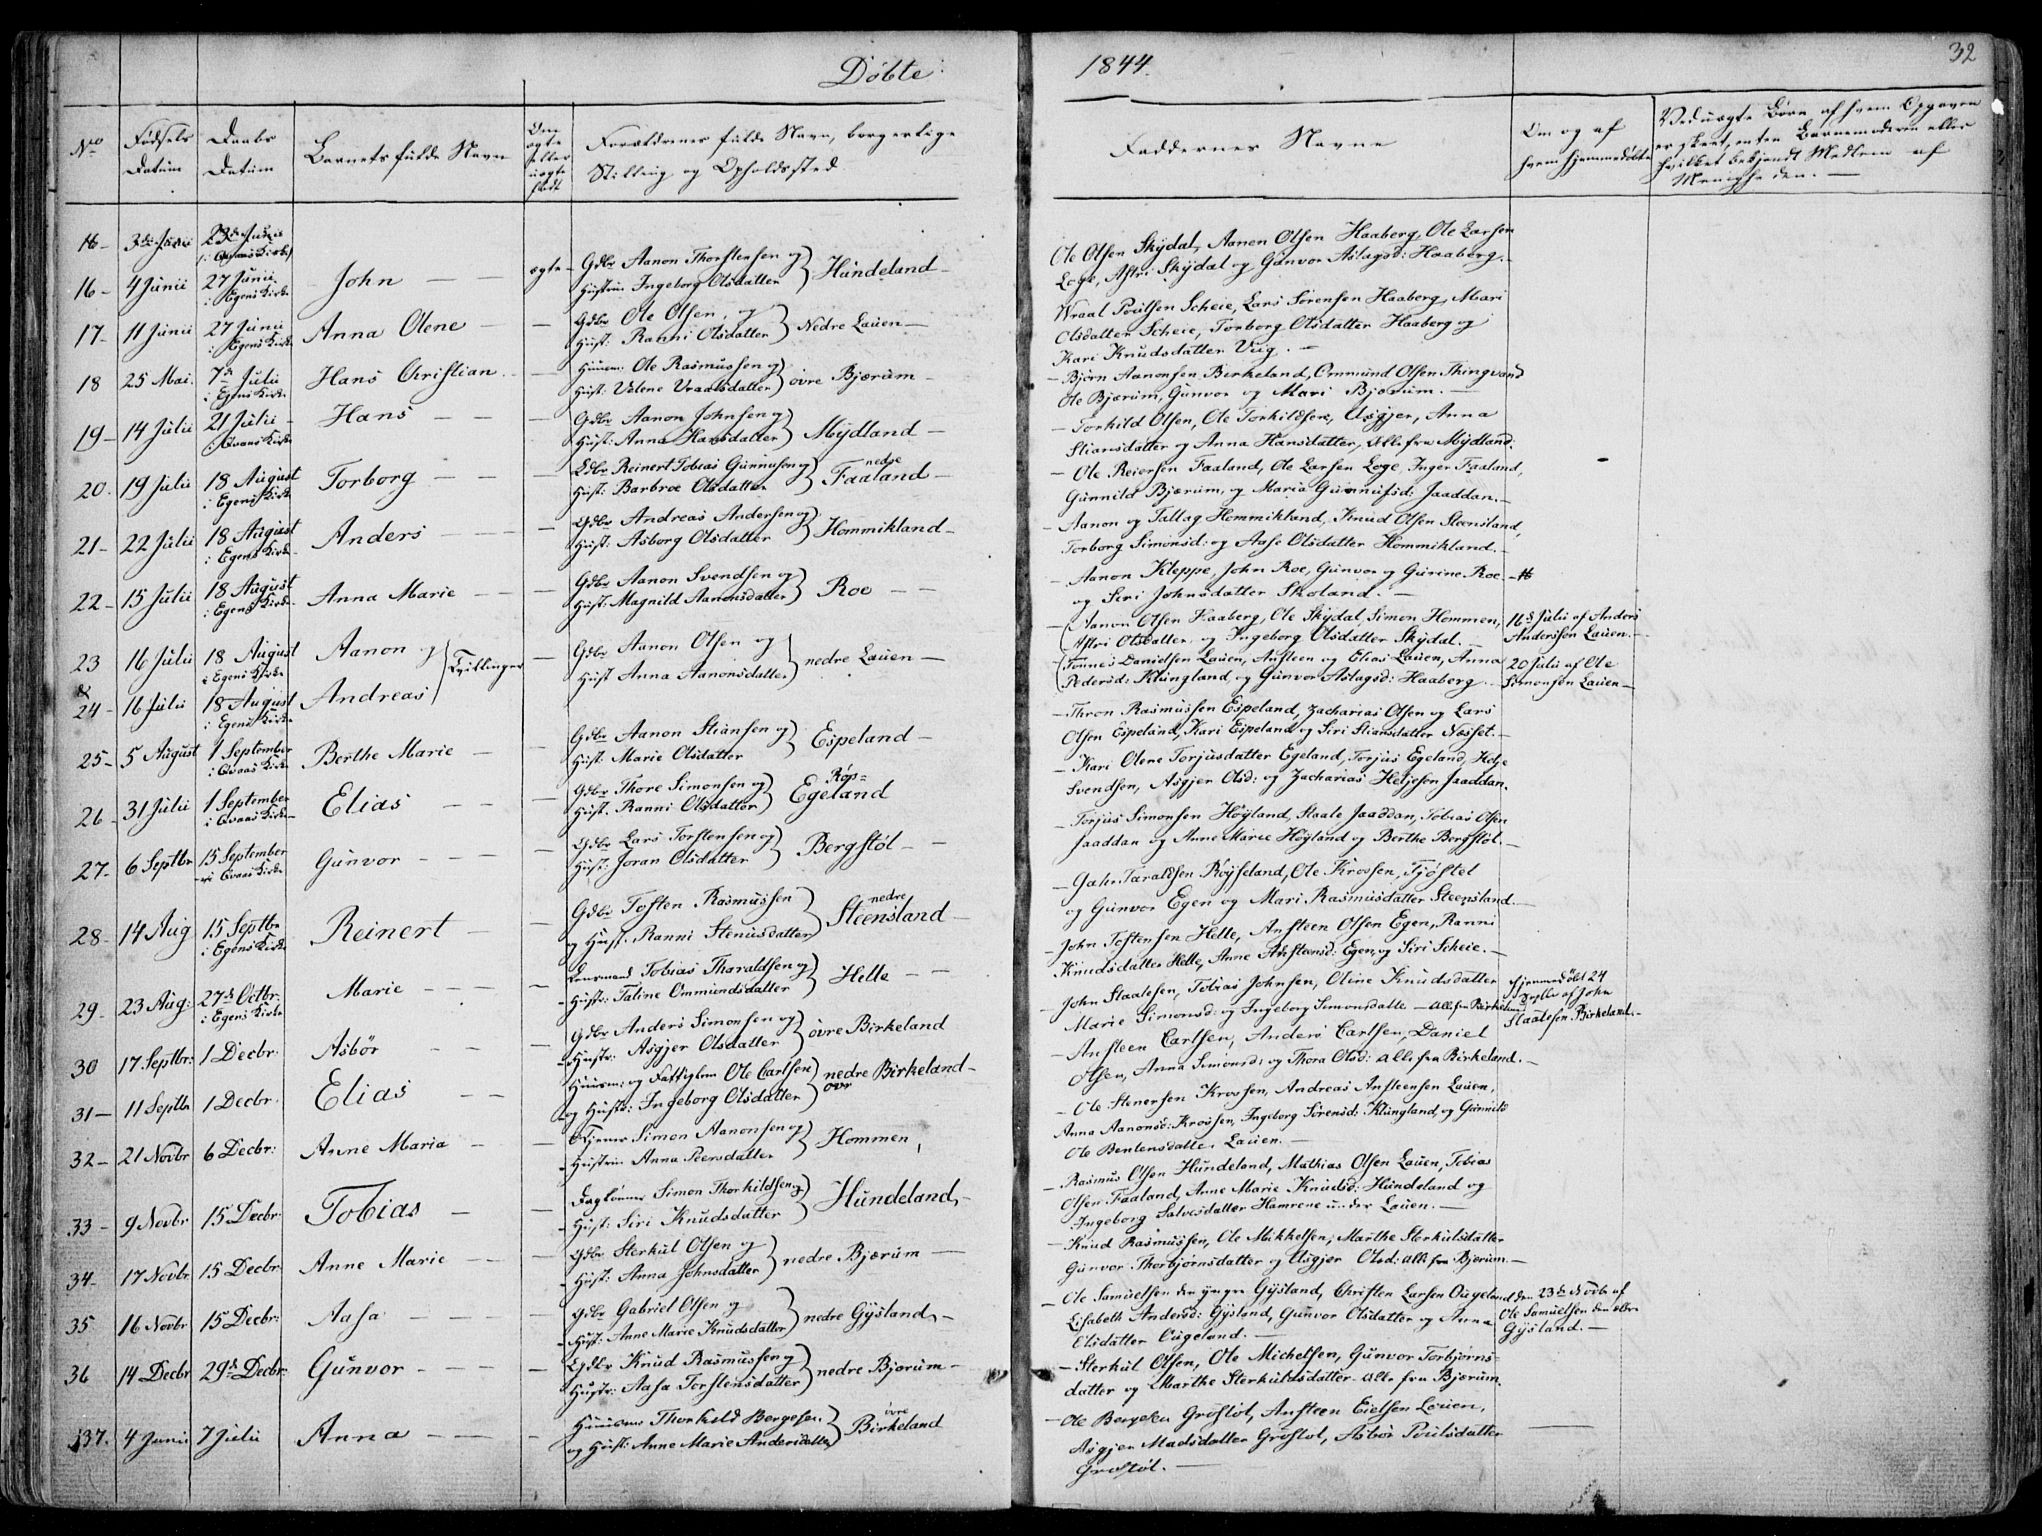 Döbte:
1844.
32
No
Födsels Datum
Daabs Datum
Barnets fulde Navn
Om ægte eller uægte født
Forældrenes fulde Navn, borgerlige Stilling og Opholdssted
Faddernes Navne
Om og af hvem hjemmedöbte
Ved uægte Börn af hvem Opgaven er skeet, enten Barnemoderen eller hvilket bekjendt Medlem af Menigheden. —
16 - 4 Junii 27 Junii i Egens Kirke John — ægte - Gdbr Aanon Thorstensen og Hustrue Ingeborg Olsdatter } Hundeland -
17 - 11 Junii 27 Junii i Egens Kirke Anna Olene — Gdbr Ole Olsen, og Hust. Ranni Olsdatter } Nedre Lauen —
18 25 Mai. 7de Julii i Egens Kirke Hans Christian. — Huusm: Ole Rasmussen og Hust: Valene Vraalsdatter } övre Bjærum -
19 - 14 Julii 21 Julii i Qvaas Kirke Hans — Gdbr Aanon Johnsen og Hust: Anna Hansdatter } Mydland —
20. 19 Julii 18 August i Egens Kirke Torborg — Gdbr Reinert Tobias Gunnufsen og Hust: Barbroe Olsdatter } nedre Faaland —
21 - 22 Julii 18 August i Egens Kirke Anders — Gdbr Andreas Andersen og Hust: Asborg Olsdatter } Hommikland -
22 - 15 Julii 18 August i Egens Kirke Anna Marie — Gdbr Aanon Svendsen og Hust: Magnild Aanonsdatter } Roe —
23 16 Julii 18 August i Egens Kirke Aanon og } Tvillinger — Gdbr Aanon Olsen og
& 24 - 16 Julii 18 August i Egens Kirke Andreas — Hust Anna Aanonsdatter } nedre Lauen —
25 - 5 August 1 September i Qvaas Kirke Berthe Marie — Gdbr Aanon Stiansen og Hust: Marie Olsdatter } Espeland —
26 - 31 Julii 1 September i Qvaas Kirke Elias — Gdbr Thore Simonsen og Hust. Ranni Olsdatter } Röp= Egeland
27 - 6 Septbr 15 September i Qvaas Kirke Gunvor — Gdbr Lars Torstensen og Hust: Joran Olsdatter } Bergstöl —
28 - 14 Aug 15 Septbr i Egens Kirke Reinert — Gdbr Tosten Rasmussen og Hust. Ranni Stenusdatter } nedre Steensland —
29 - 23 Aug: 27de Octbr: i Egens Kirke Marie — Lensmand Tobias Tharaldsen og Hustr: Taline Ommundsdatter } Helle —
30 17 Septbr: 1 Decbr: Asbör — Gdbr Anders Simonsen og Hustr: Asgjer Olsdatter } övre Birkeland
31 — 11 Septbr 1 Decbr. Elias — Huusm: og Fattiglem Ole Carlsen og Hustr: Ingeborg Olsdatter } nedre Birkeland -
32 - 21 Novbr 6 Decbr: Anne Maria — Tjener Simon Aanonsen og Hustrue Anna Peersdatter } Hommen,
33 - 9 Novbr 15 Decbr: Tobias — Daglönner Simon Thorkildsen og Hust: Siri Knudsdatter } Hundeland, -
34 - 17 Novbr 15 Decbr: Anne Marie — Gdbr Sterkul Olsen og Hust: Anna Johnsdatter } nedre Bjærum —
35 16 Novbr 15 Decbr: Aasa — Gdbr Gabriel Olsen og Hust: Anne Marie Knudsdatter } nedre Gysland, -
36 14 Decbr 29de Decbr: Gunvor — Gdbr Knud Rasmussen og Hustr: Aasa Torstensdatter } nedre Bjærum -
37. 4 Junii 7 Julii Anna — Huusm: Thorkild Bergesen og Hust: Anne Marie Andersdatter } övre Birkeland
Ole Olsen Skydal, Aanen Olsen Haaberg, Ole Larsen
Loge, Astri Skydal og Gunvor Aslagsd: Haaberg. -
Wraal Poulsen Scheie, Lars Sörensen Haaberg, Mari
Olsdatter Scheie, Torborg Olsdatter Haaberg og
Kari Knudsdatter Vug. —
- Björn Aanonsen Birkeland, Ommund Olsen Thingvand
Ole Bjærum, Gunvor og Mari Bjærum. —
- Torkild Olsen, Ole Torkildsen, Asgjer, Anna
Stiansdatter og Anna Hansdatter, Alle fra Mydland.
- Ole Reiersen Faaland, Ole Larsen Loge, Inger Faaland,
Gunnild Bjærum, og Maria Gunnufsd: Jaaddan. -
- Aanon og Tallag Hommikland, Knud Olsen Steensland,
Torborg Simonsd: og Aase Olsdatter Hommikland. -
- Aanon Kleppe, John Roe, Gunvor og Gurine Roe
og Seri Johnsdatter Skoland. —
Aanon Olsen Haaberg, Ole Skydal, Simon Hommen,
Astri Olsdatter og Ingeborg Olsdatter Skydal. —
16de Julii af Anders Anderssen Lauen. -
Tönnes Danielsen Lauen, Ansteen og Elias Lauen, Anna
Pedersd: Klungland, og Gunvor Aslagsd: Haaberg.
20 Julii af Ole Simonsen Lauen -
- Thron Rasmussen Espeland, Zacharias Olsen og Lars
Olsen Espeland, Kari Espeland og Siri Stiansdatter Næsset. -
- Kari Olene Torjusdatter Egeland, Torjus Egeland, Helje
Svendsen, Asgjer Olsd: og Zacharias Heljesen Jaaddan.
- Torjus Simonsen Höyland, Staale Jaaddan, Tobias Olsen
Jaaddan og Anne Marie Höyland og Berthe Bergstöl. -
- Jahr Taraldsen Röysseland, Ole Krossen, Tjöstel
og Gunvor Egen og Mari Rasmusdatter Steensland. -
- John Tostensen Helle, Ansteen Olsen Egen, Ranni
Knudsdatter Helle, Anne Ansteensd: Egen, og Siri Scheie. -
John Staalesen, Tobias Johnsen, Oline Knudsdatter
Marie Simonsd: og Ingeborg Simonsdatter — Alle fra Birkeland
hjemmedöbt 24 Septbr af John Staalesen Birkeland. -
- Ansteen Carlsen, Anders Carlsen, Daniel
Olsen, Anna Simonsd: og Thora Olsd: Alle fra Birkeland. —
- Ole Stenersen Krossen, Andreas Ansteensen Lauen,
Anna Aanonsd: Krossen, Ingeborg Sörensd: Klungland, og Gunnild
Ole Bentensdatter Lauen. —
- Rasmus Olsen Hundeland, Mathias Olsen Lauen, Tobias
Olsen Faaland, Anne Marie Knudsd: Hundeland og
Ingeborg Salvesdatter Hamrene under Lauen. —
- Knud Rasmussen, Ole Mikkelsen, Marthe Sterkulsdatter
Gunvor Thorbjörnsdatter og Asgjer Olsd: alle fra Bjerum —
- Ole Samuelsen den yngre Gysland, Christen Larsen Ougeland
Elisabeth Andersd: Gysland, Gunvor Olsdatter og Anna
Elsdatter Ougeland. —
den 23de Novbr af Ole Samuelsen den ældre Gysland. —
- Sterkul Olsen, Ole Michelsen, Gunvor Torbjörns=
datter og Marthe Sterkulsdatter - Alle fra Bjærum.
- Ole Bergesen Grostöl, Ansteen Eielsen Lauen,
Asgjer Madsdatter Grostöl, Asbör Poulsdatter
Grostöl. —